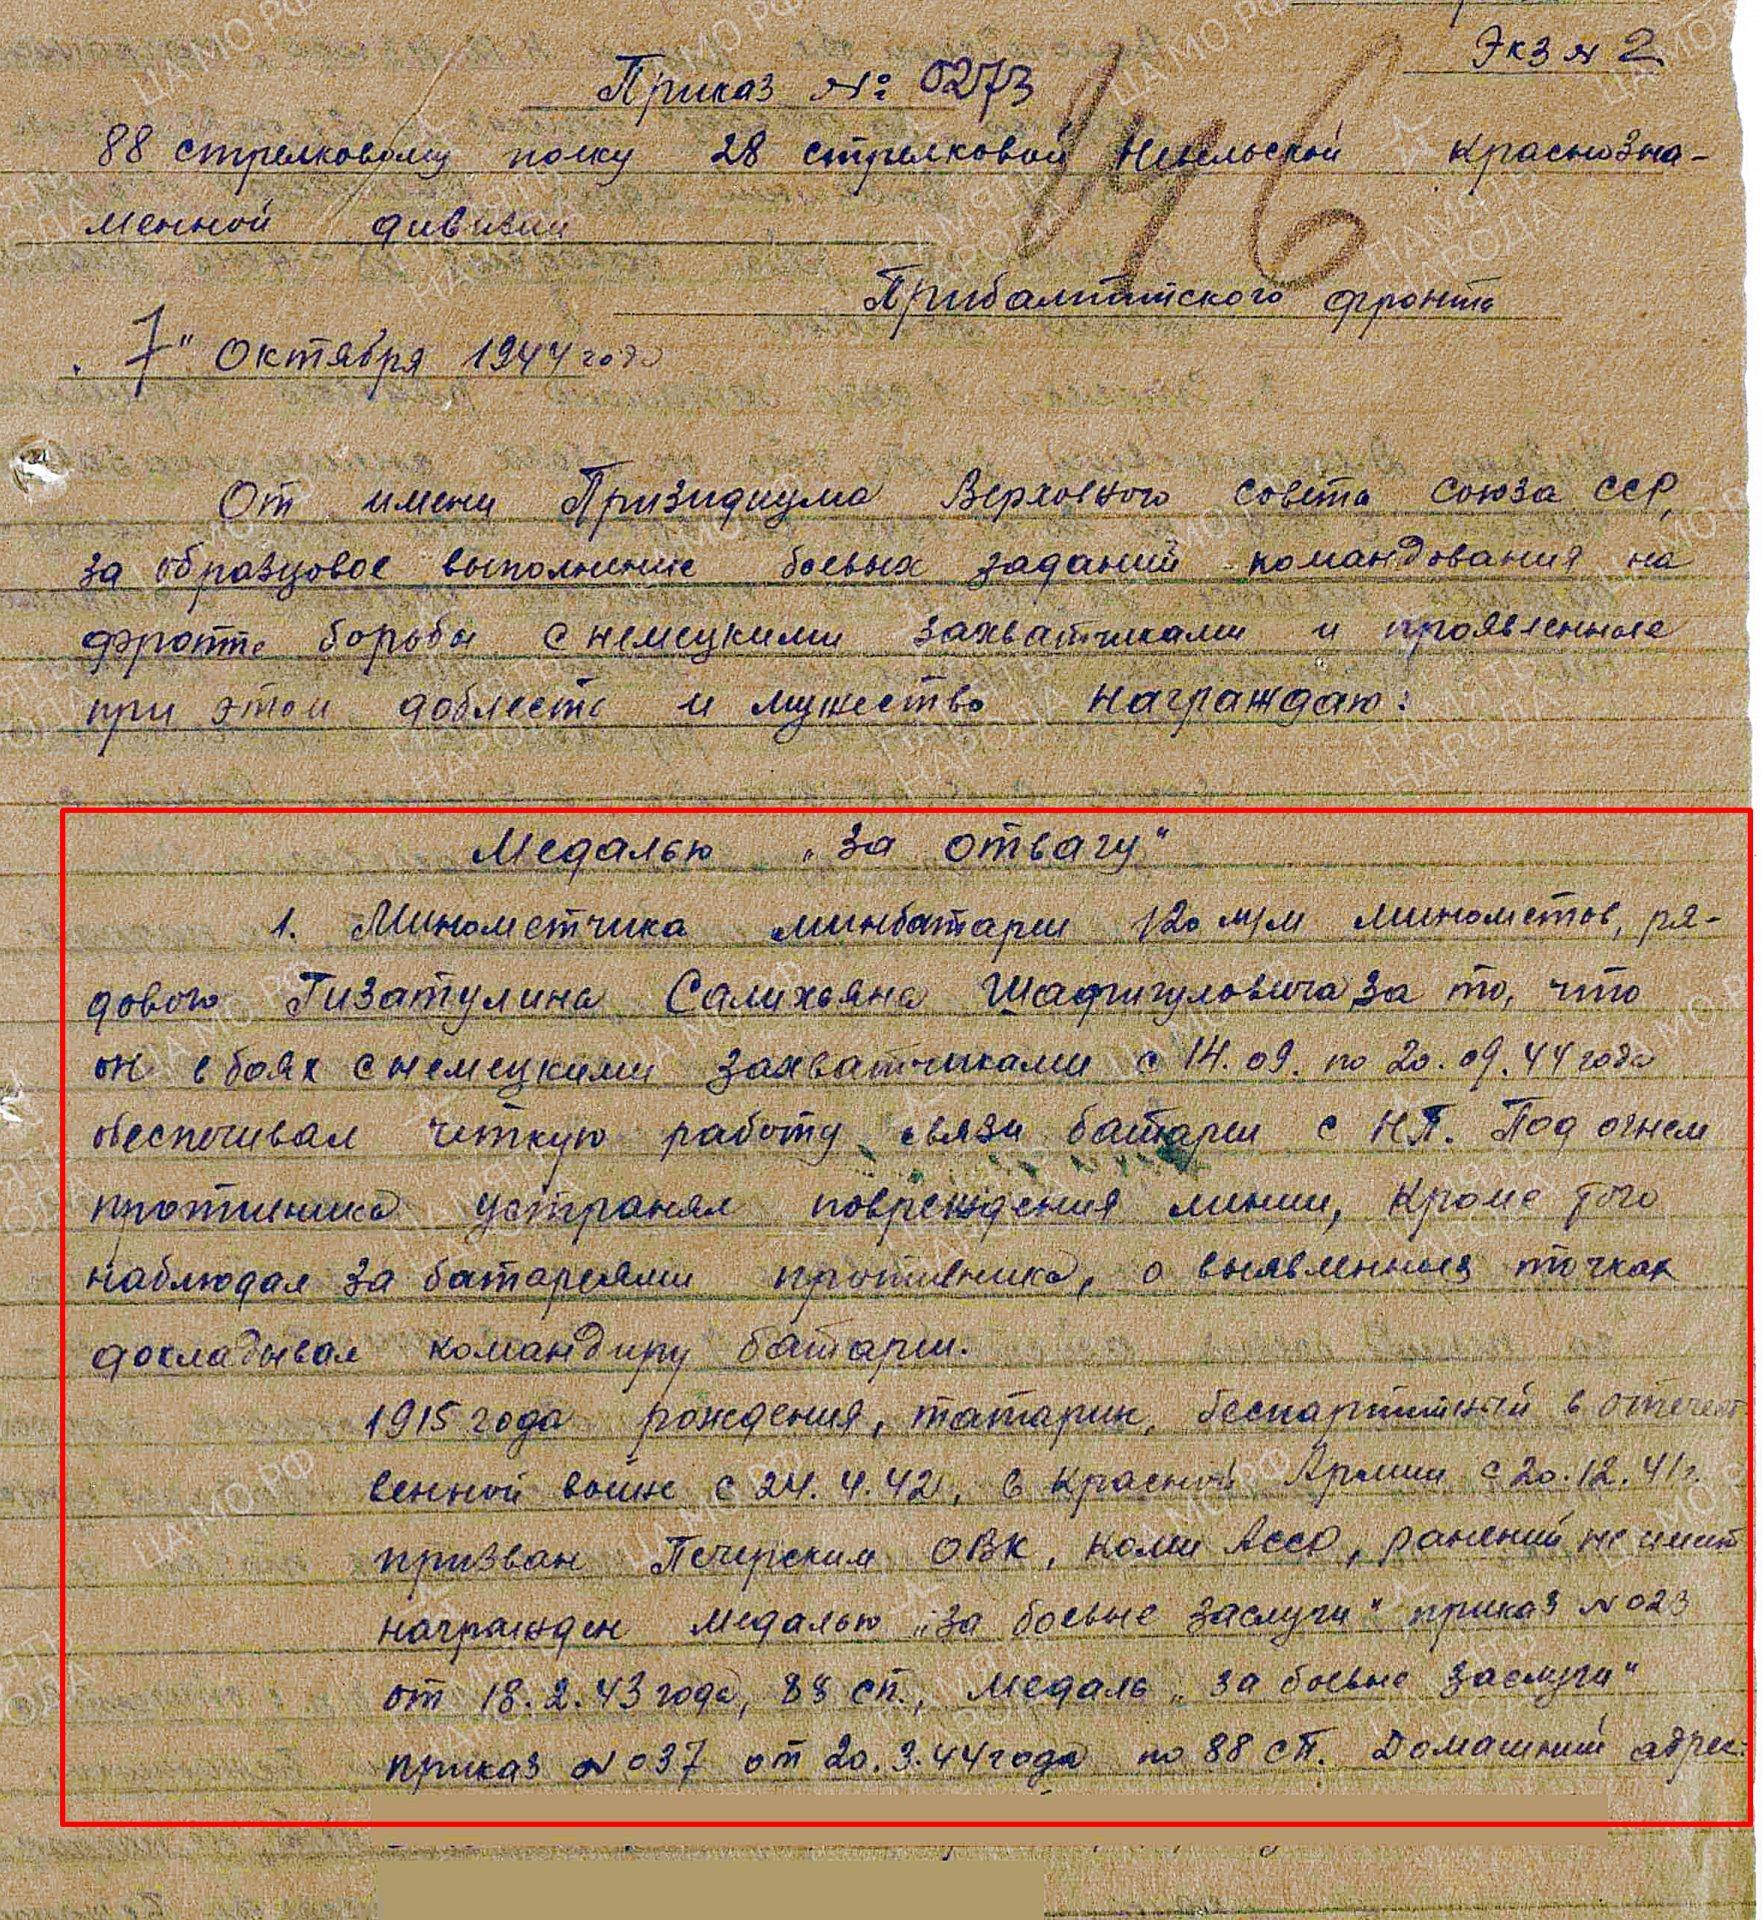 Экз № 2
Приказ №: 0273
88 стрелковому полку 28 стрелковой Невельской Краснозна-
менной дивизии
Прибалтийского фронта
"7" Октября 1944 года
От имени Призидиума Верховного Совета Союза ССР,
за образцовое выполнение боевых заданий командования на
фронте борьбы с немецкими захватчиками и проявленные
при этом доблесть и мужество награждаю:
Медалью „За отвагу"
1. Минометчика минбатареи 120 м/м минометов, ря-
дового Гизатулина Салихьяна Шафигуловича за то, что
он в боях с немецкими захватчиками с 14.09. по 20.09.44 года
обеспечивал четкую работу связи батареи с НП. Под огнем
противника устранял повреждения линии, Кроме того
наблюдал за батареями противника, о выявленных точках
докладывал командиру батареи.
1915 года рождения, татарин, беспартийный в отечест
венной войне с 24.4.42, в Красной Армии с 20.12.41г.
призван Печерским ОВК, Коми АССР, ранений не имеет
награжден медалью „За боевые заслуги" приказ №023
от 18.2.43 года, 88 сп., медаль „За боевые заслуги"
приказ №037 от 20.3.44 года по 88 СП. Домашний адрес: